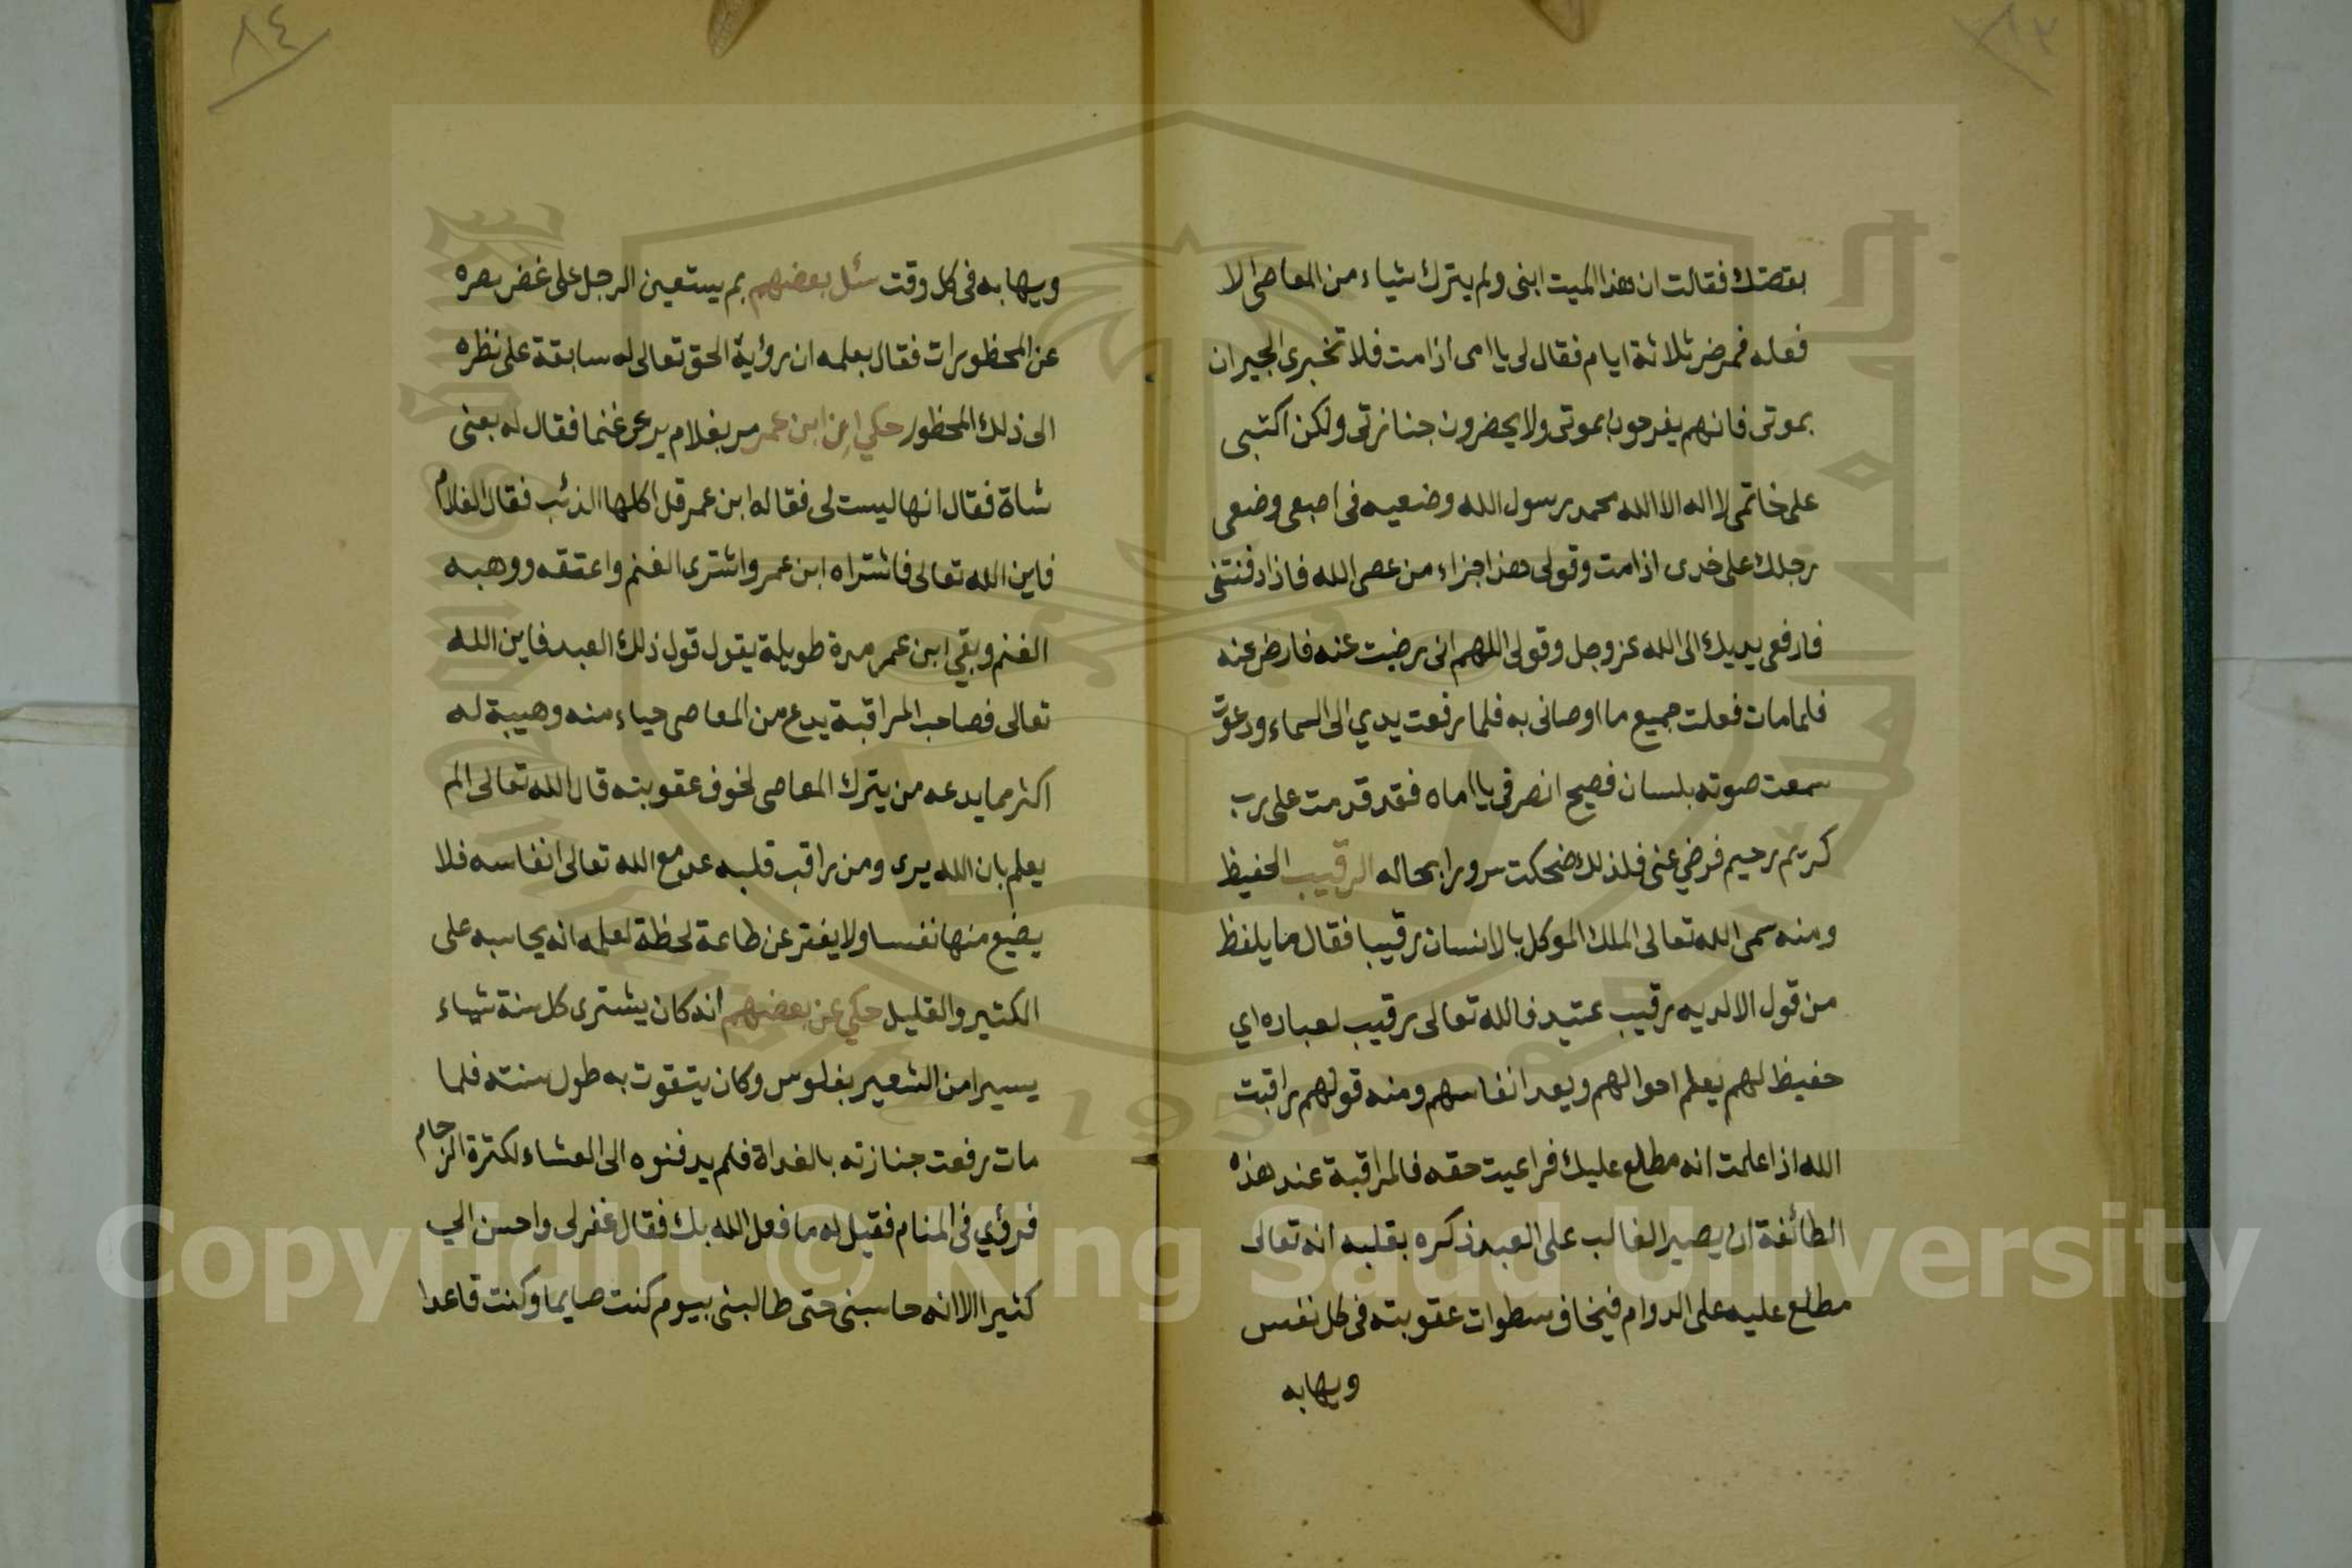 ٨٣
بقصتك فقالت ان هذا الميت ابنى ولم يترك شياء من المعاصى الا
فعله فمرض ثلاثة ايام فقال لى يا امى اذا مت فلا تخبرى الجيران
بموتى فانهم يفرحون بموتى ولا يحضرون جنازتى ولكن اكتبى
على خاتمى لا اله الا الله محمد رسول الله وضعيه فى اصبعى وضعى
رجلك على خدى اذا مت وقولى هذا جزاء من عصى الله فاذا دفنتنى
فارفعى يديك الى الله عز وجل وقولى اللهم انى رضيت عنه فارض عنه
فلما مات فعلت جميع ما اوصانى به فلما رفعت يدي الى السماء ودعوت
سمعت صوته بلسان فصيح انصرفى يا اماه فقد قدمت على رب
كريم رحيم فرضي عنى فلذلك ضحكت سرورا بحاله الرقيب الحفيظ
ومنه سمى الله تعالى الملك الموكل بالانسان رقيبا فقال ما يلفظ
من قول الا لديه رقيب عتيد فالله تعالى رقيب لعباده اي
حفيظ لهم يعلم احوالهم ويعد انفاسهم ومنه قولهم راقبت
الله اذا علمت انه مطلع عليك فراعيت حقه فالمراقبة عند هذه
الطائفة ان يصير الغالب على العبد ذكره بقلبه انه تعالى
مطلع عليه على الدوام فيخاف سطوات عقوبته فى كل نفس
ويهابه
٨٤
ويهابه فى كل وقت سئل بعضهم بم يستعين الرجل على غض بصره
عن المحظورات فقال بعلمه ان رؤية الحق تعالى له سابقة على نظره
الى ذلك المحظور حكي ان ابن عمر مر بغلام يرعى غنما فقال له بعنى
شاة فقال انها ليست لى فقاله ابن عمر قل اكلها الذئب فقال الغلام
فاين الله تعالى فاشتراه ابن عمر واشترى الغنم واعتقه ووهبه
الغنم وبقي ابن عمر مدة طويلة يقول قول ذلك العبد فاين الله
تعالى فصاحب المراقبة يدع من المعاصى حياء منه وهيبة له
اكثر مما يدعه من يترك المعاصى لخوف عقوبته قال الله تعالى الم
يعلم بان الله يرى ومن راقب قلبه عد مع الله تعالى انفاسه فلا
يضيع منها نفسا ولا يفتر عن طاعة لحظة لعلمه انه يحاسبه على
الكثير والقليل حكي عن بعضهم انه كان يشترى كل سنة شياء
يسيرا من الشعير بفلوس وكان يتقوت به طول سنته فلما
مات رفعت جنازته بالغداة فلم يدفنوه الى العشاء لكثرة الزحام
فرؤي فى المنام فقيل له ما فعل الله بك فقال غفر لى واحسن الي
كثيرا الا انه حاسبنى حتى طالبنى بيوم كنت صايما وكنت قاعدا
Copyright © King Saud University
1957